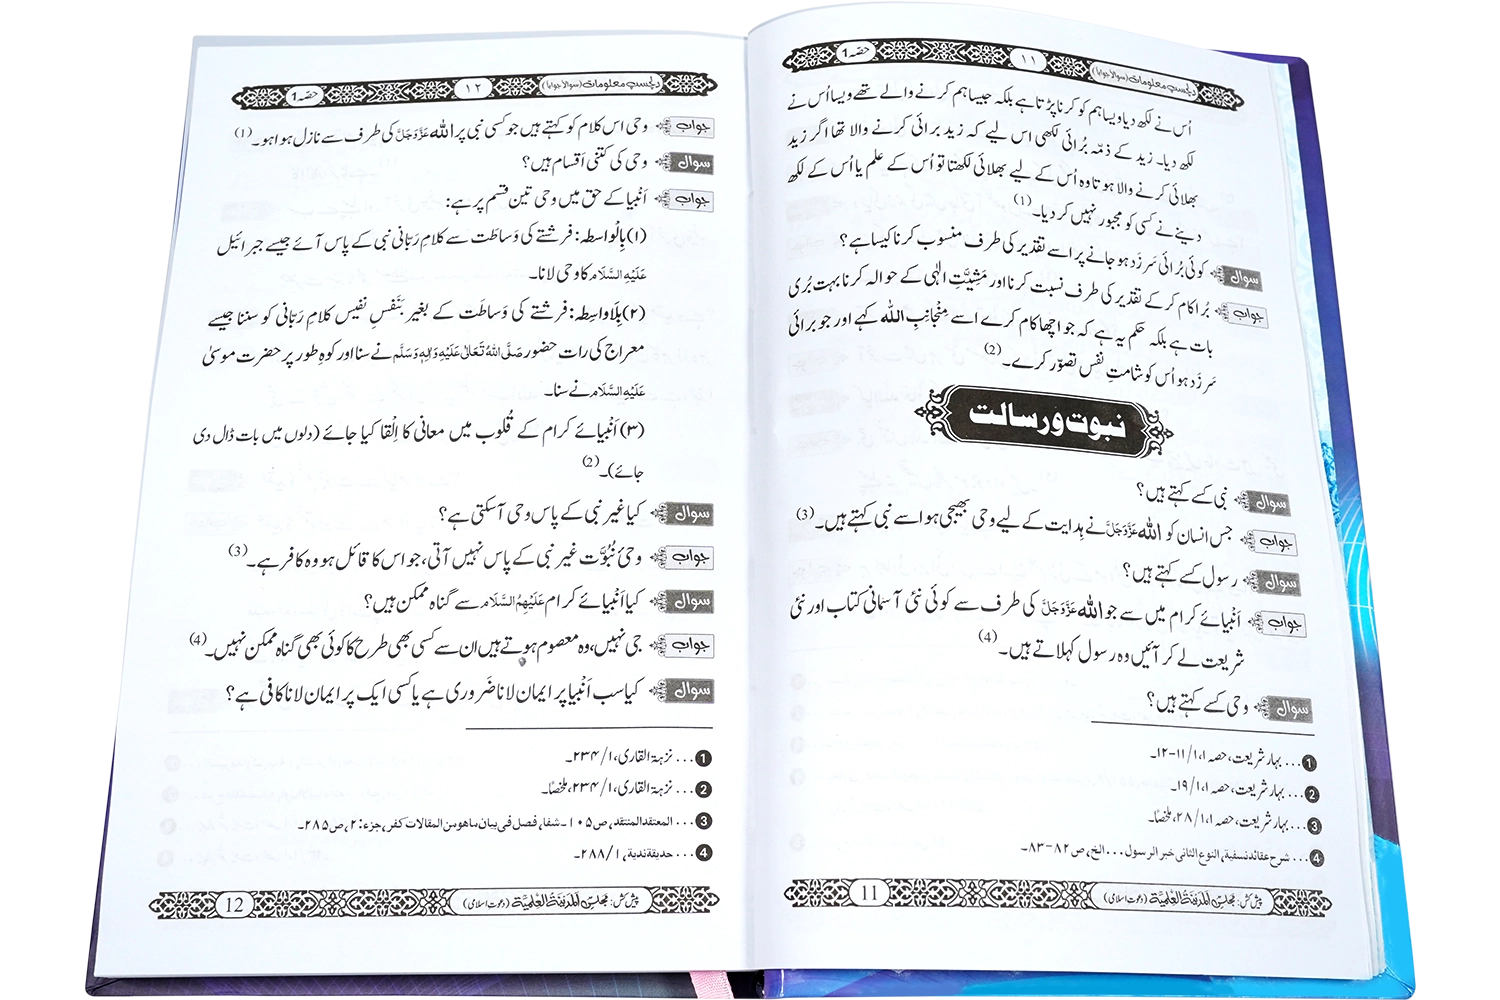 دلچسپ معلومات (سوالاً جواباً) ١١ حصّہ 1
اُس نے لکھ دیا ویسا ہم کو کرنا پڑتا ہے بلکہ جیسا ہم کرنے والے تھے ویسا اُس نے
لکھ دیا۔ زید کے ذمّہ بُرائی لکھی اس لیے کہ زید برائی کرنے والا تھا اگر زید
بھلائی کرنے والا ہوتا وہ اُس کے لیے بھلائی لکھتا تو اُس کے علم یا اُس کے لکھ
دینے نے کسی کو مجبور نہیں کر دیا۔ (1)
سوال کوئی بُرائی سَرزَد ہو جانے پر اسے تقدیر کی طرف منسوب کرنا کیسا ہے؟
جواب بُرا کام کر کے تقدیر کی طرف نسبت کرنا اور مَشِیَّتِ الٰہی کے حوالہ کرنا بہت بُری
بات ہے بلکہ حکم یہ ہے کہ جو اچھا کام کرے اسے مِنْجَانِبِ اللّٰه کہے اور جو برائی
سَرزَد ہو اُس کو شامتِ نفس تصوّر کرے۔ (2)
نبوت و رسالت
سوال نبی کسے کہتے ہیں؟
جواب جس انسان کو اللّٰه عَزَّوَجَلَّ نے ہِدایت کے لیے وحی بھیجی ہو اسے نبی کہتے ہیں۔ (3)
سوال رسول کسے کہتے ہیں؟
جواب اَنْبیائے کرام میں سے جو اللّٰه عَزَّوَجَلَّ کی طرف سے کوئی نئی آسمانی کتاب اور نئی
شریعت لے کر آئیں وہ رسول کہلاتے ہیں۔ (4)
سوال وحی کسے کہتے ہیں؟
1 ... بہار شریعت، حصہ ١، ١/ ١١-١٢۔
2 ... بہار شریعت، حصہ ١، ١/ ١٩۔
3 ... بہار شریعت، حصہ ١، ١/ ٢٨، ملخصًا۔
4 ... شرح عقائد نسفیة، النوع الثانی خبر الرسول ... الخ، ص ٨٢-٨٣۔
پیش کش: مجلس اَلْمَدِیْنَۃُ الْعِلْمِیَّۃ (دعوت اسلامی) 11
دلچسپ معلومات (سوالاً جواباً) ١٢ حصّہ 1
جواب وحی اس کلام کو کہتے ہیں جو کسی نبی پر اللّٰه عَزَّوَجَلَّ کی طرف سے نازل ہوا ہو۔ (1)
سوال وحی کی کتنی اَقسام ہیں؟
جواب اَنْبیا کے حق میں وحی تین قسم پر ہے:
(١) بِالْواسطہ: فرشتے کی وَساطَت سے کلامِ رَبّانی نبی کے پاس آئے جیسے جبرائیل
عَلَیْهِ السَّلَام کا وحی لانا۔
(٢) بِلاواسِطہ: فرشتے کی وَساطَت کے بغیر بَنَفْسِ نفیس کلامِ رَبّانی کو سننا جیسے
معراج کی رات حضور صَلَّی اللهُ تَعَالٰی عَلَیْهِ وَاٰلِهٖ وَسَلَّم نے سنا اور کوہِ طور پر حضرت موسیٰ
عَلَیْهِ السَّلَام نے سنا۔
(٣) اَنْبیائے کرام کے قُلوب میں معانی کا اِلْقا کیا جائے (دلوں میں بات ڈال دی
جائے)۔ (2)
سوال کیا غیرِ نبی کے پاس وحی آسکتی ہے؟
جواب وحیٔ نُبُوَّت غیرِ نبی کے پاس نہیں آتی، جو اس کا قائل ہو وہ کافر ہے۔ (3)
سوال کیا اَنْبیائے کرام عَلَیْهِمُ السَّلَام سے گناہ ممکن ہیں؟
جواب جی نہیں، وہ معصوم ہوتے ہیں ان سے کسی بھی طرح کا کوئی بھی گناہ ممکن نہیں۔ (4)
سوال کیا سب اَنْبیا پر ایمان لانا ضَروری ہے یا کسی ایک پر ایمان لانا کافی ہے؟
1 ... نزہۃ القاری، ١/ ٢٣٤۔
2 ... نزہۃ القاری، ١/ ٢٣٤، ملخصًا۔
3 ... المعتقد المنتقد، ص ١٠٥۔ شفا، فصل فی بیان ما هو من المقالات کفر، جزء: ٢، ص ٢٨٥۔
4 ... حدیقة ندیة، ١/ ٢٨٨۔
پیش کش: مجلس اَلْمَدِیْنَۃُ الْعِلْمِیَّۃ (دعوت اسلامی) 12